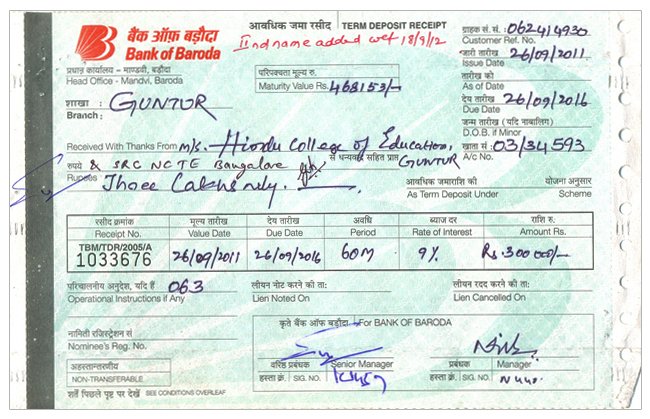 बैंक ऑफ़ बड़ौदा
Bank of Baroda
प्रधान कार्यालय - माण्डवी, बड़ौदा
Head Office - Mandvi, Baroda
आवधिक जमा रसीद TERM DEPOSIT RECEIPT
IInd name added wef 18/9/12
परिपक्वता मूल्य रु.
Maturity Value Rs. 468153/-
ग्राहक सं. सं. : 062414930
Customer Ref. No.
जारी तारीख 26/09/2011
Issue Date
तारीख को
As of Date
देय तारीख 26/09/2016
Due Date
जन्म तारीख (यदि नाबालिग)
D.O.B. if Minor
शाखा : GUNTUR
Branch :
Received With Thanks From M/s. Hindu College of Education,
खाता सं 03/34593
A/c No.
रुपये & SRC NCTE Bangalore से धन्यवाद सहित प्राप्त GUNTUR
Rupees Three Lakhs only.
आवधिक जमाराशि की योजना अनुसार
As Term Deposit Under Scheme
रसीद क्रमांक मूल्य तारीख देय तारीख अवधि ब्याज दर राशि रु.
Receipt No. Value Date Due Date Period Rate of Interest Amount Rs.
TBM/TDR/2005/A
1033676 26/09/2011 26/09/2016 60M 9% Rs 300000/-
परिचालनीय अनुदेश, यदि हैं 063
Operational Instructions if Any
लीयन नोट करने की ता:
Lien Noted On
लीयन रदद करने की ता:
Lien Cancelled On
नामिती रजिस्ट्रेशन सं
Nominee's Reg. No.
कृते बैंक ऑफ़ बड़ौदा For BANK OF BARODA
अहस्तान्तरणीय
NON-TRANSFERABLE
वरिष्ठ प्रबंधक Senior Manager
हस्ता क्रं. SIG. NO.
प्रबंधक Manager
हस्ता क्रं. SIG. NO.
शर्तें पिछले पृष्ठ पर देखें SEE CONDITIONS OVERLEAF